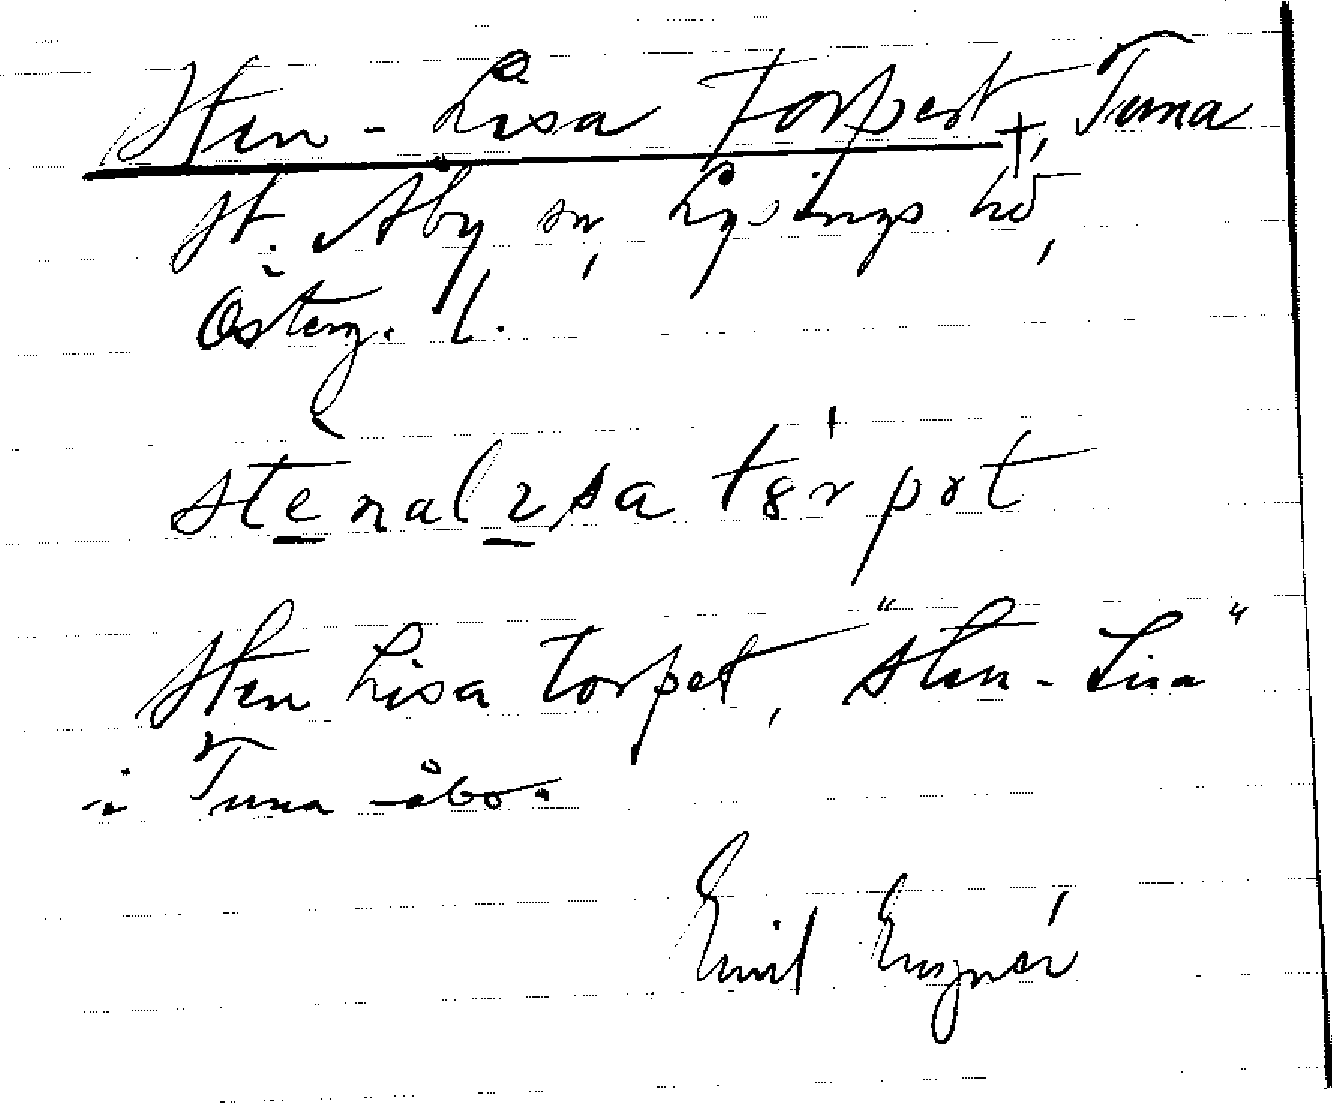 Sten-Lisa torpet †, Tuna
St. Åby sn, Lysings hd,
Österg. l.
stenalisa torpet
Sten Lisa torpet, "Sten-Lisa"
i Tuna åbo.
Emil